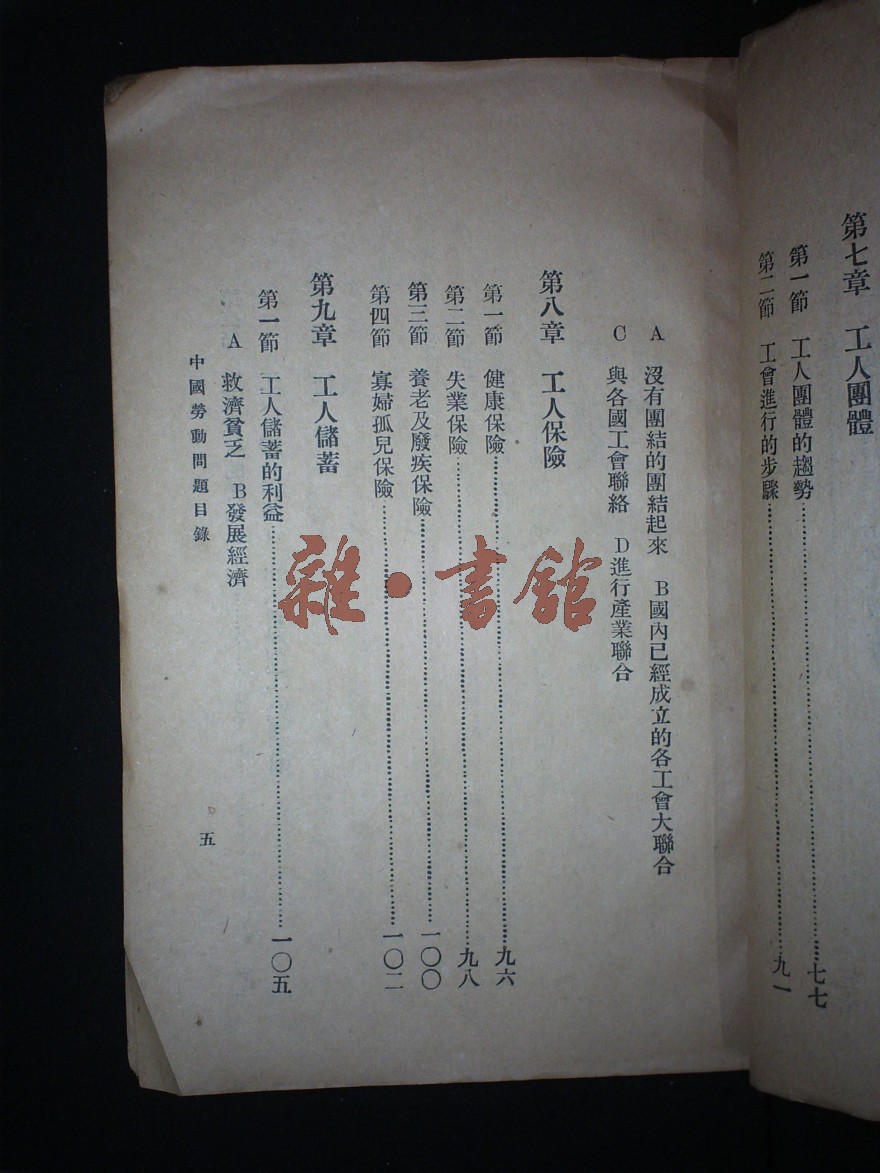 第七章　工人團體
第一節　工人團體的趨勢……七七
第二節　工會進行的步驟……九一
A　沒有團結的團結起來　B國內已經成立的各工會大聯合
C　與各國工會聯絡　D進行產業聯合
第八章　工人保險
第一節　健康保險……九六
第二節　失業保險……九八
第三節　養老及廢疾保險……一〇〇
第四節　寡婦孤兒保險……一〇二
第九章　工人儲蓄
第一節　工人儲蓄的利益……一〇五
A　救濟貧乏　B發展經濟
中國勞動問題目錄
五
雜·書館